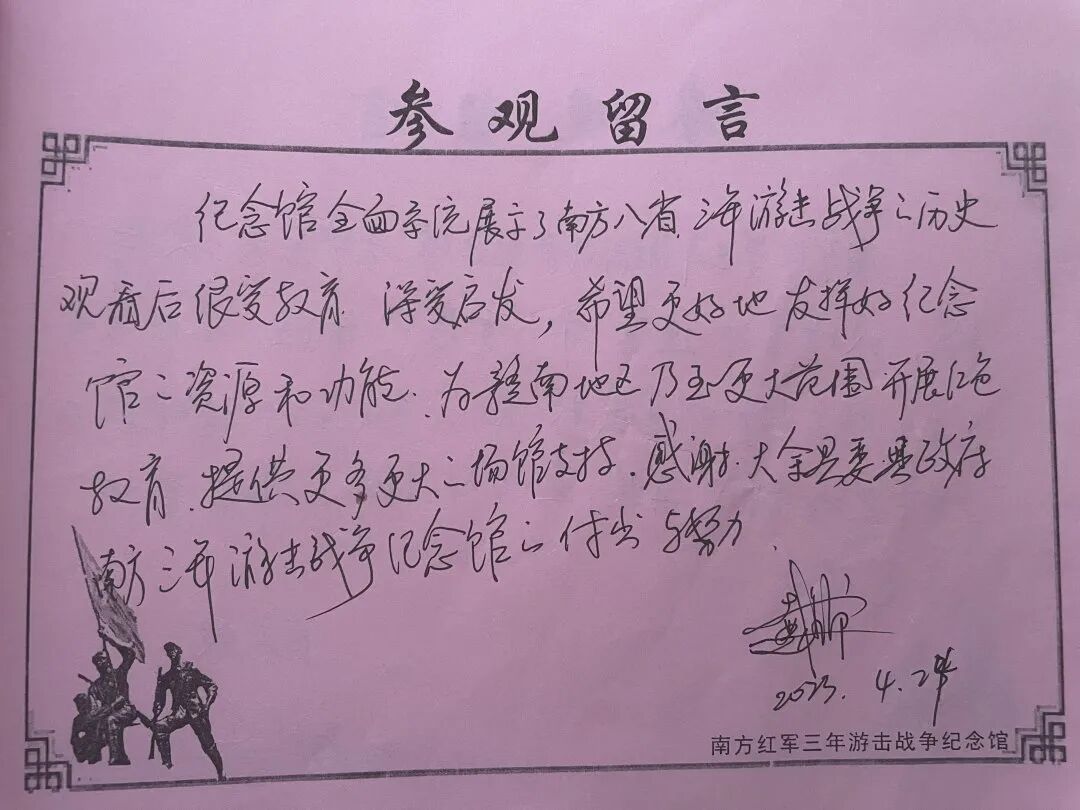 参观留言
纪念馆全面系统展示了南方八省三年游击战争之历史
观看后很受教育 深受启发，希望更好地发挥好纪念
馆之资源和功能、为赣南地区乃至更大范围开展红色
教育、提供更多更大之场馆支持、感谢大余县委县政府
南方三年游击战争纪念馆之付出与努力、
2023.4.24
南方红军三年游击战争纪念馆